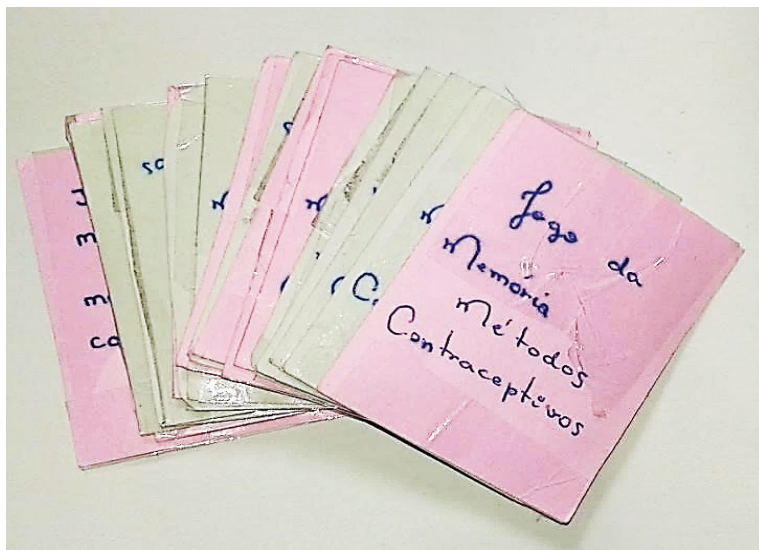 Jogo da
Memória
Métodos
Contraceptivos